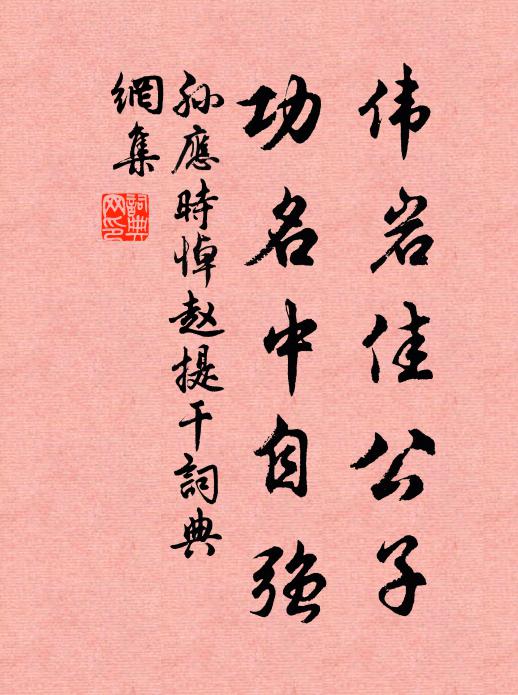 伟岩佳公子
功名中自强
孙應時悼赵提干詞典
網集
詞典
网印